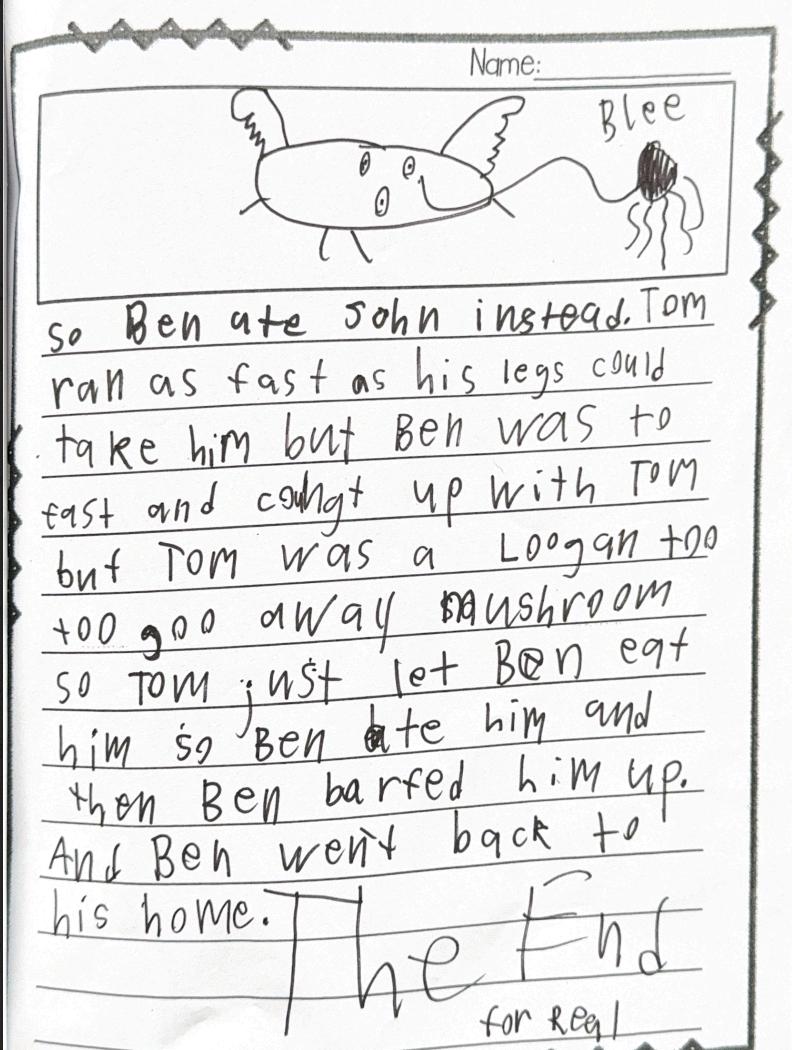 Name:
Blee
so Ben ate John instead. Tom
ran as fast as his legs could
take him but Ben was to
fast and coungt up with Tom
but Tom was a Loogan too
too goo away mushroom
so Tom just let Ben eat
him so Ben ate him and
then Ben barfed him up.
And Ben went back to
his home. The End
for Real